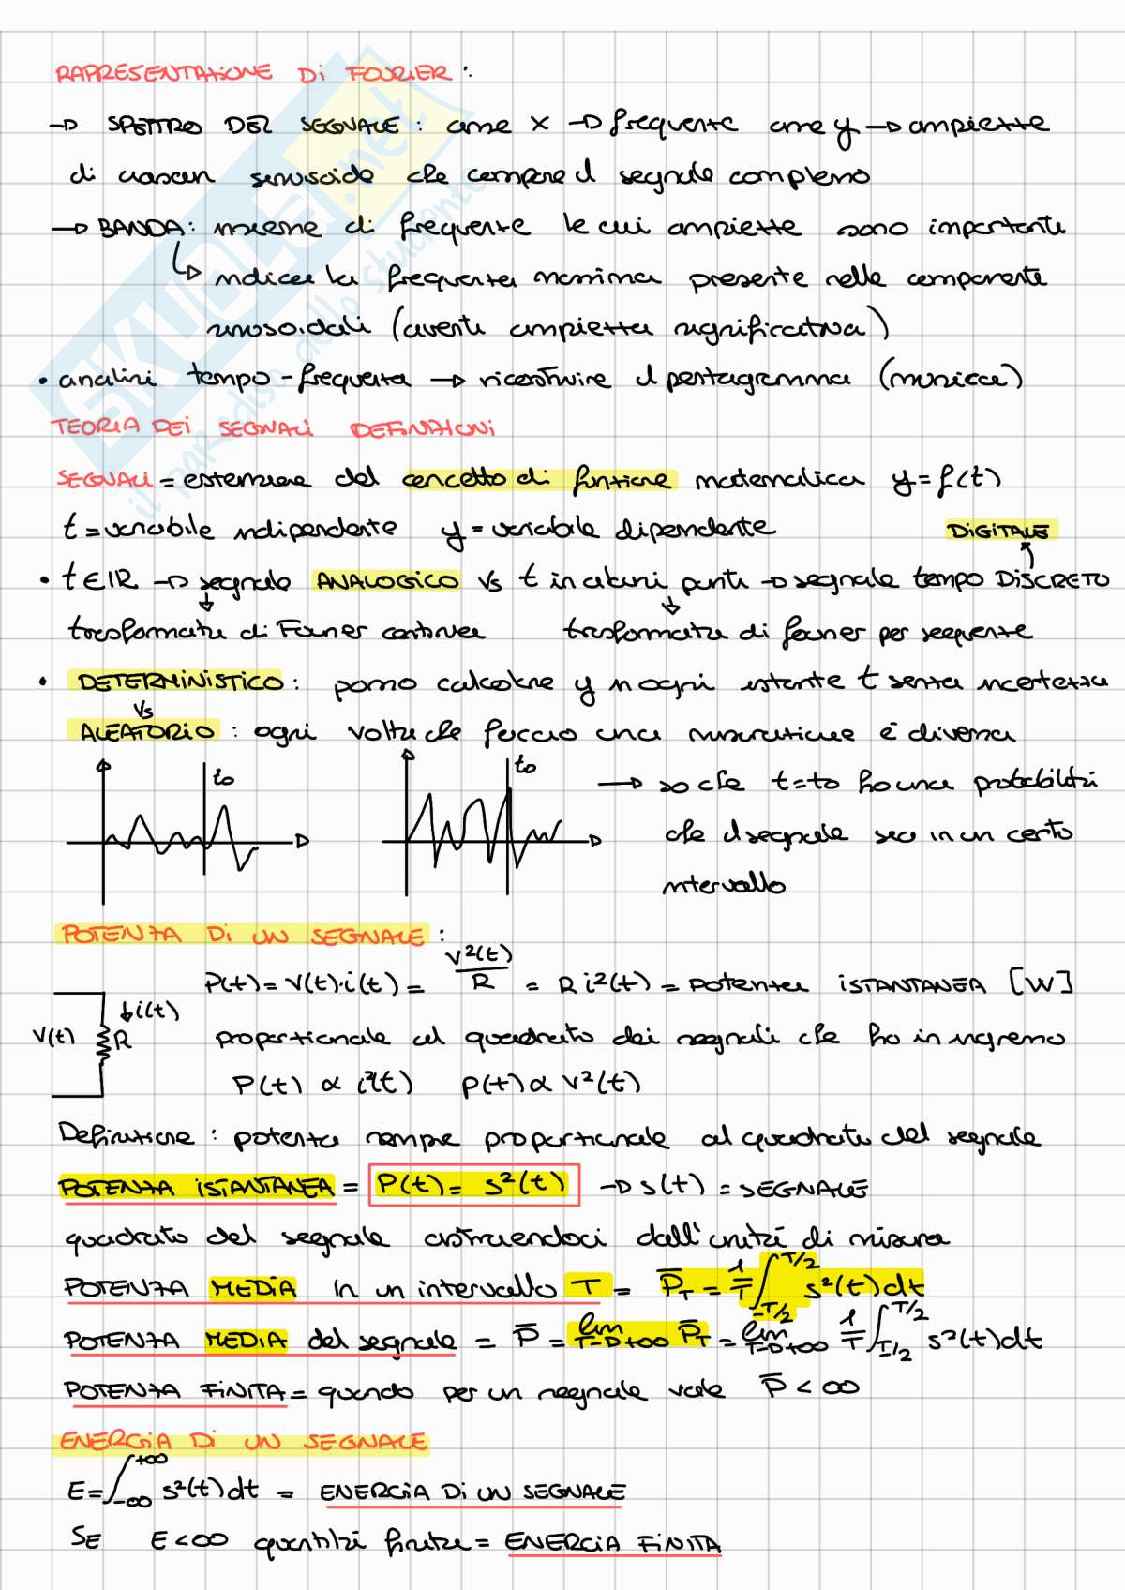 RAPPRESENTAZIONE Di FOURIER :
→ SPETTRO DEL SEGNALE : asse x → frequenze asse y → ampiezze
di ciascun sinusoide che compone il segnale complesso
→ BANDA : insieme di frequenze le cui ampiezze sono importanti
↳ indica la frequenza massima presente nelle componenti
sinusoidali (aventi ampiezza significativa)
• analisi tempo - frequenza → ricostruire il pentagramma (musica)
TEORIA DEI SEGNALI DEFINIZIONI
SEGNALI = estensione del concetto di funzione matematica y = f(t)
t = variabile indipendente y = variabile dipendente
DIGITALE
• t ∈ IR → segnale ANALOGICO vs t in alcuni punti → segnale tempo DISCRETO
trasformata di Fourier continua trasformata di fourier per sequenze
• DETERMINISTICO : posso calcolare y in ogni istante t senza incertezza
vs
ALEATORIO : ogni volta che faccio una misurazione è diversa
t0 t0 → so che t=t0 ho una probabilità
che il segnale sia in un certo
intervallo
POTENZA Di UN SEGNALE :
P(t) = V(t)·i(t) = V²(t)/R = R i²(t) = potenza iSTANTANEA [W]
V(t) ↓i(t) R
proporzionale al quadrato dei segnali che ho in ingresso
P(t) ∝ i²(t) P(t) ∝ V²(t)
Definizione : potenza sempre proporzionale al quadrato del segnale
POTENZA iSTANTANEA = P(t) = s²(t) → s(t) = SEGNALE
quadrato del segnale astraendoci dall'unità di misura
POTENZA MEDIA in un intervallo T = P̅_T = 1/T ∫_{-T/2}^{T/2} s²(t)dt
POTENZA MEDIA del segnale = P̅ = lim_{T→+∞} P̅_T = lim_{T→+∞} 1/T ∫_{T/2}^{T/2} s²(t)dt
POTENZA FiNITA = quando per un segnale vale P̅ < ∞
ENERGIA Di UN SEGNALE
E = ∫_{-∞}^{+∞} s²(t)dt = ENERGIA Di UN SEGNALE
SE E < ∞ quantità finita = ENERGIA FiNiTA
SKUOLA.net
il paradiso dello studente